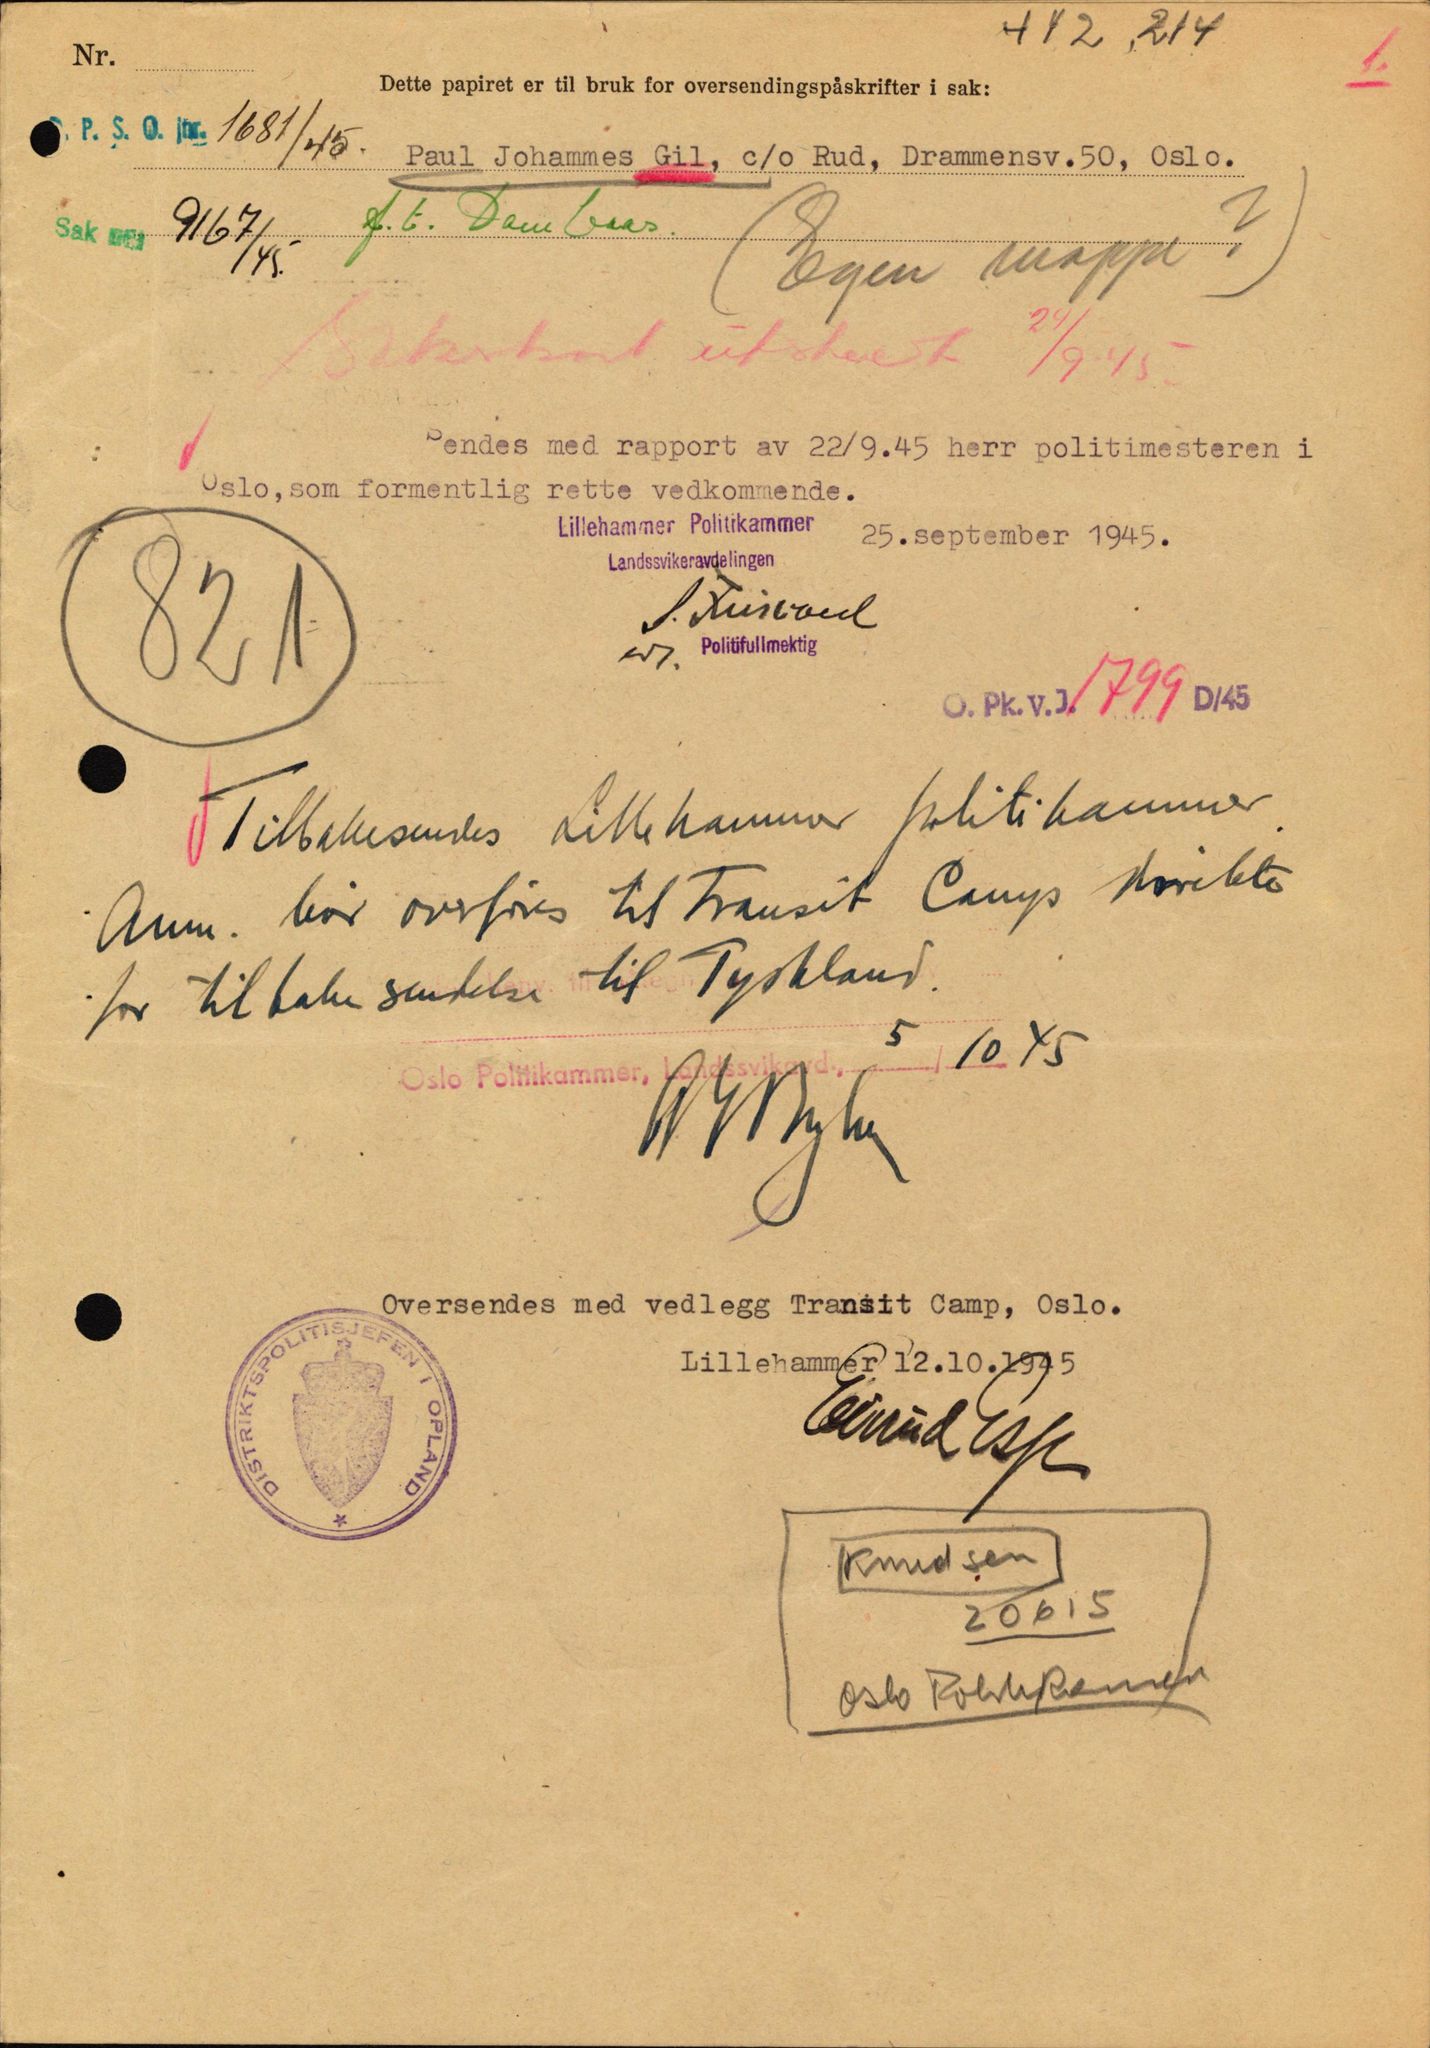 412, 214
1.
Nr.
Dette papiret er til bruk for oversendingspåskrifter i sak:
P. S. O. jnr. 1681/45.
Paul Johammes Gil, c/o Rud, Drammensv.50, Oslo.
Sak 9167/45.
f.t. Dombaas.
(Egen mappe?)
utskrevet 29/9-45.
Sendes med rapport av 22/9.45 herr politimesteren i
Oslo, som formentlig rette vedkommende.
Lillehammer Politikammer
25.september 1945.
Landssvikeravdelingen
821
Politifullmektig
O. Pk. V. J. 1799 D/45
Tilbakesendes Lillehammer politikammer.
Anm. bør overføres til Transit Camp direkte
for tilbakesendelse til Tyskland.
Oslo Politikammer, Landssvikavd., 5/10 45
Oversendes med vedlegg Transit Camp, Oslo.
Lillehammer 12.10.1945
DISTRIKTSPOLITISJEFEN I OPLAND
Knudsen
20615
Oslo Politikammer